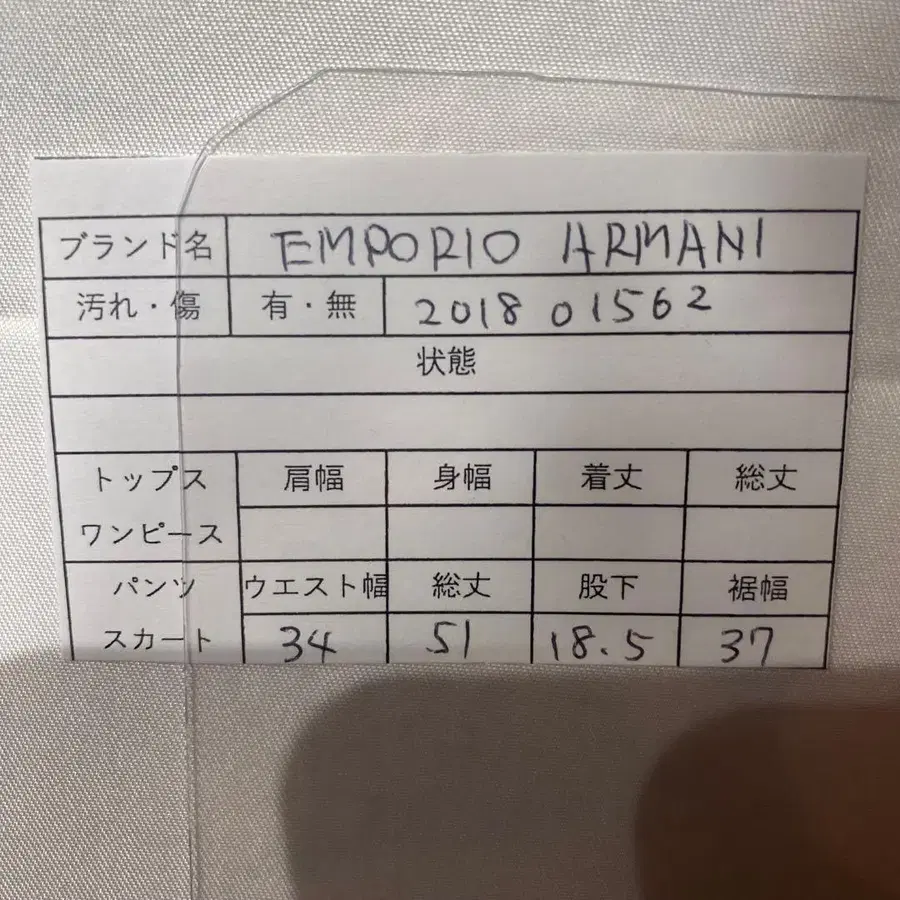 ブランド名 EMPORIO ARMANI
汚れ・傷 有・無 2018 01562
状態
トップス 肩幅 身幅 着丈 総丈
ワンピース
パンツ ウエスト幅 総丈 股下 裾幅
スカート 34 51 18.5 37